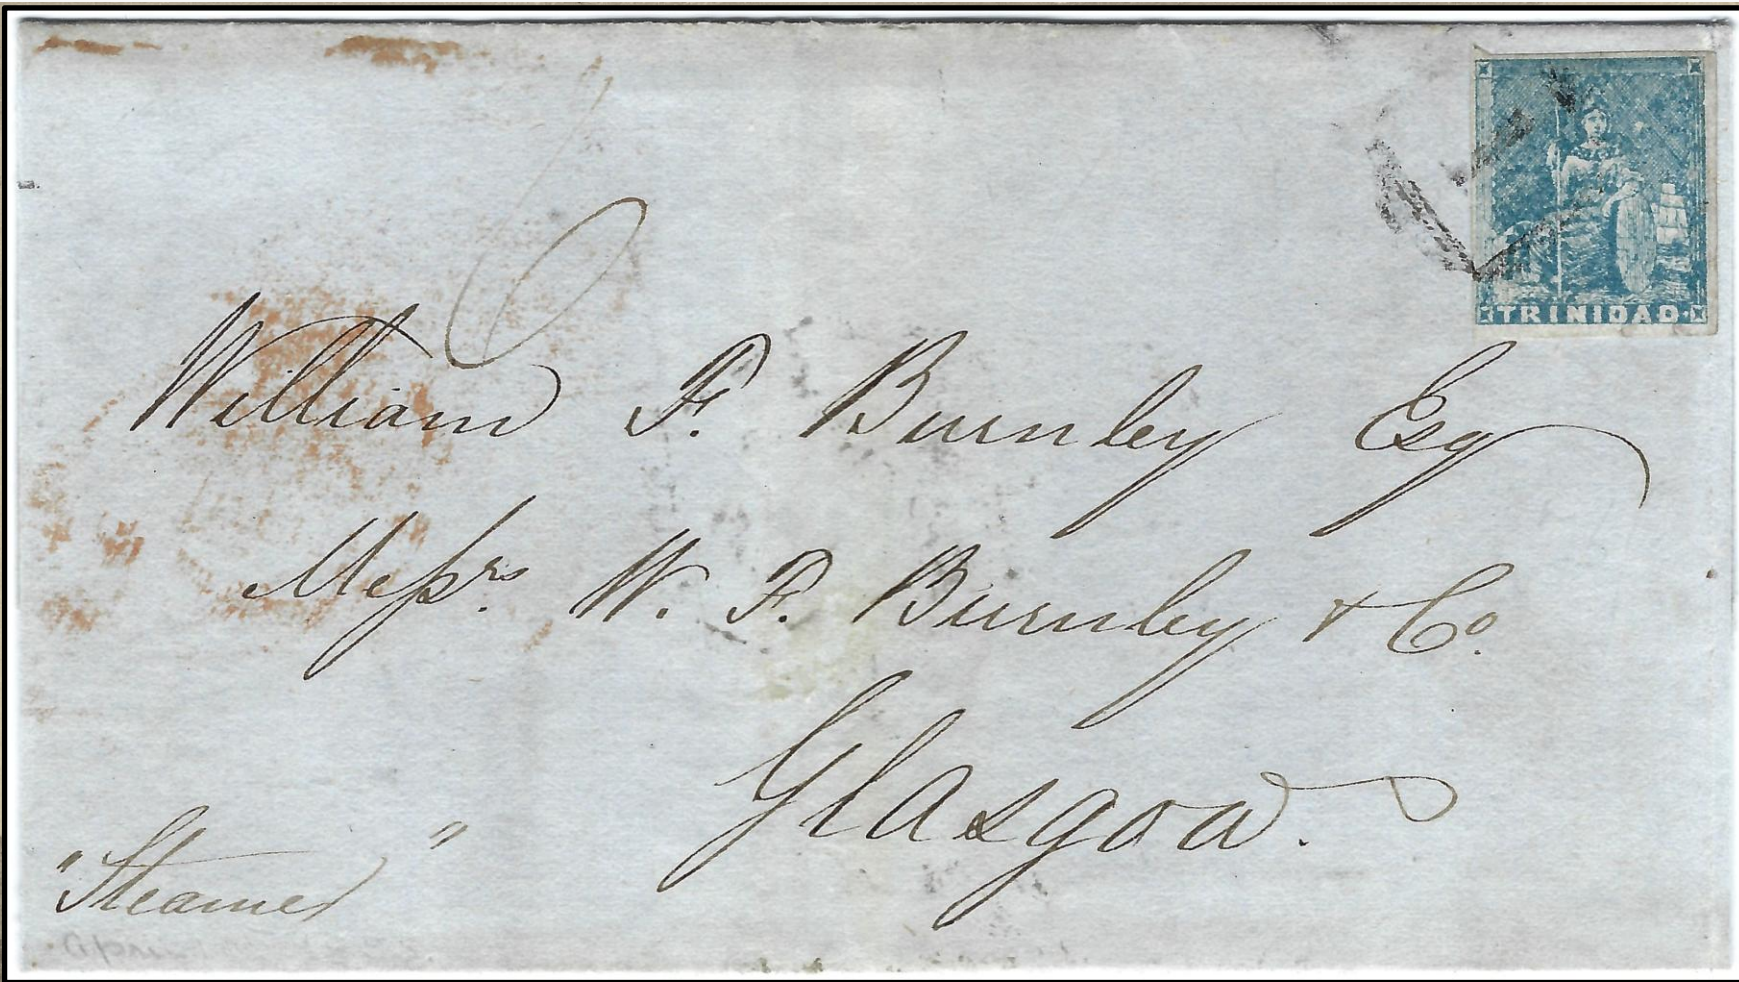 TRINIDAD
William F. Burnley Esq
Messrs. W. F. Burnley & Co.
Glasgow.
"Steamer"